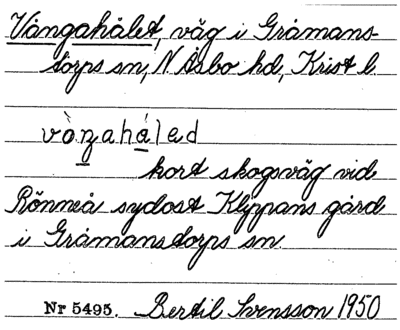 Vångahålet, väg i Gråmans-
torps sn, N Åsbo hd, Krist l.
vò̱nzahá̱led
kort skogsväg vid
Rönneå sydost Klippans gård
i Gråmanstorps sn.
Nr 5495. Bertil Svensson 1950